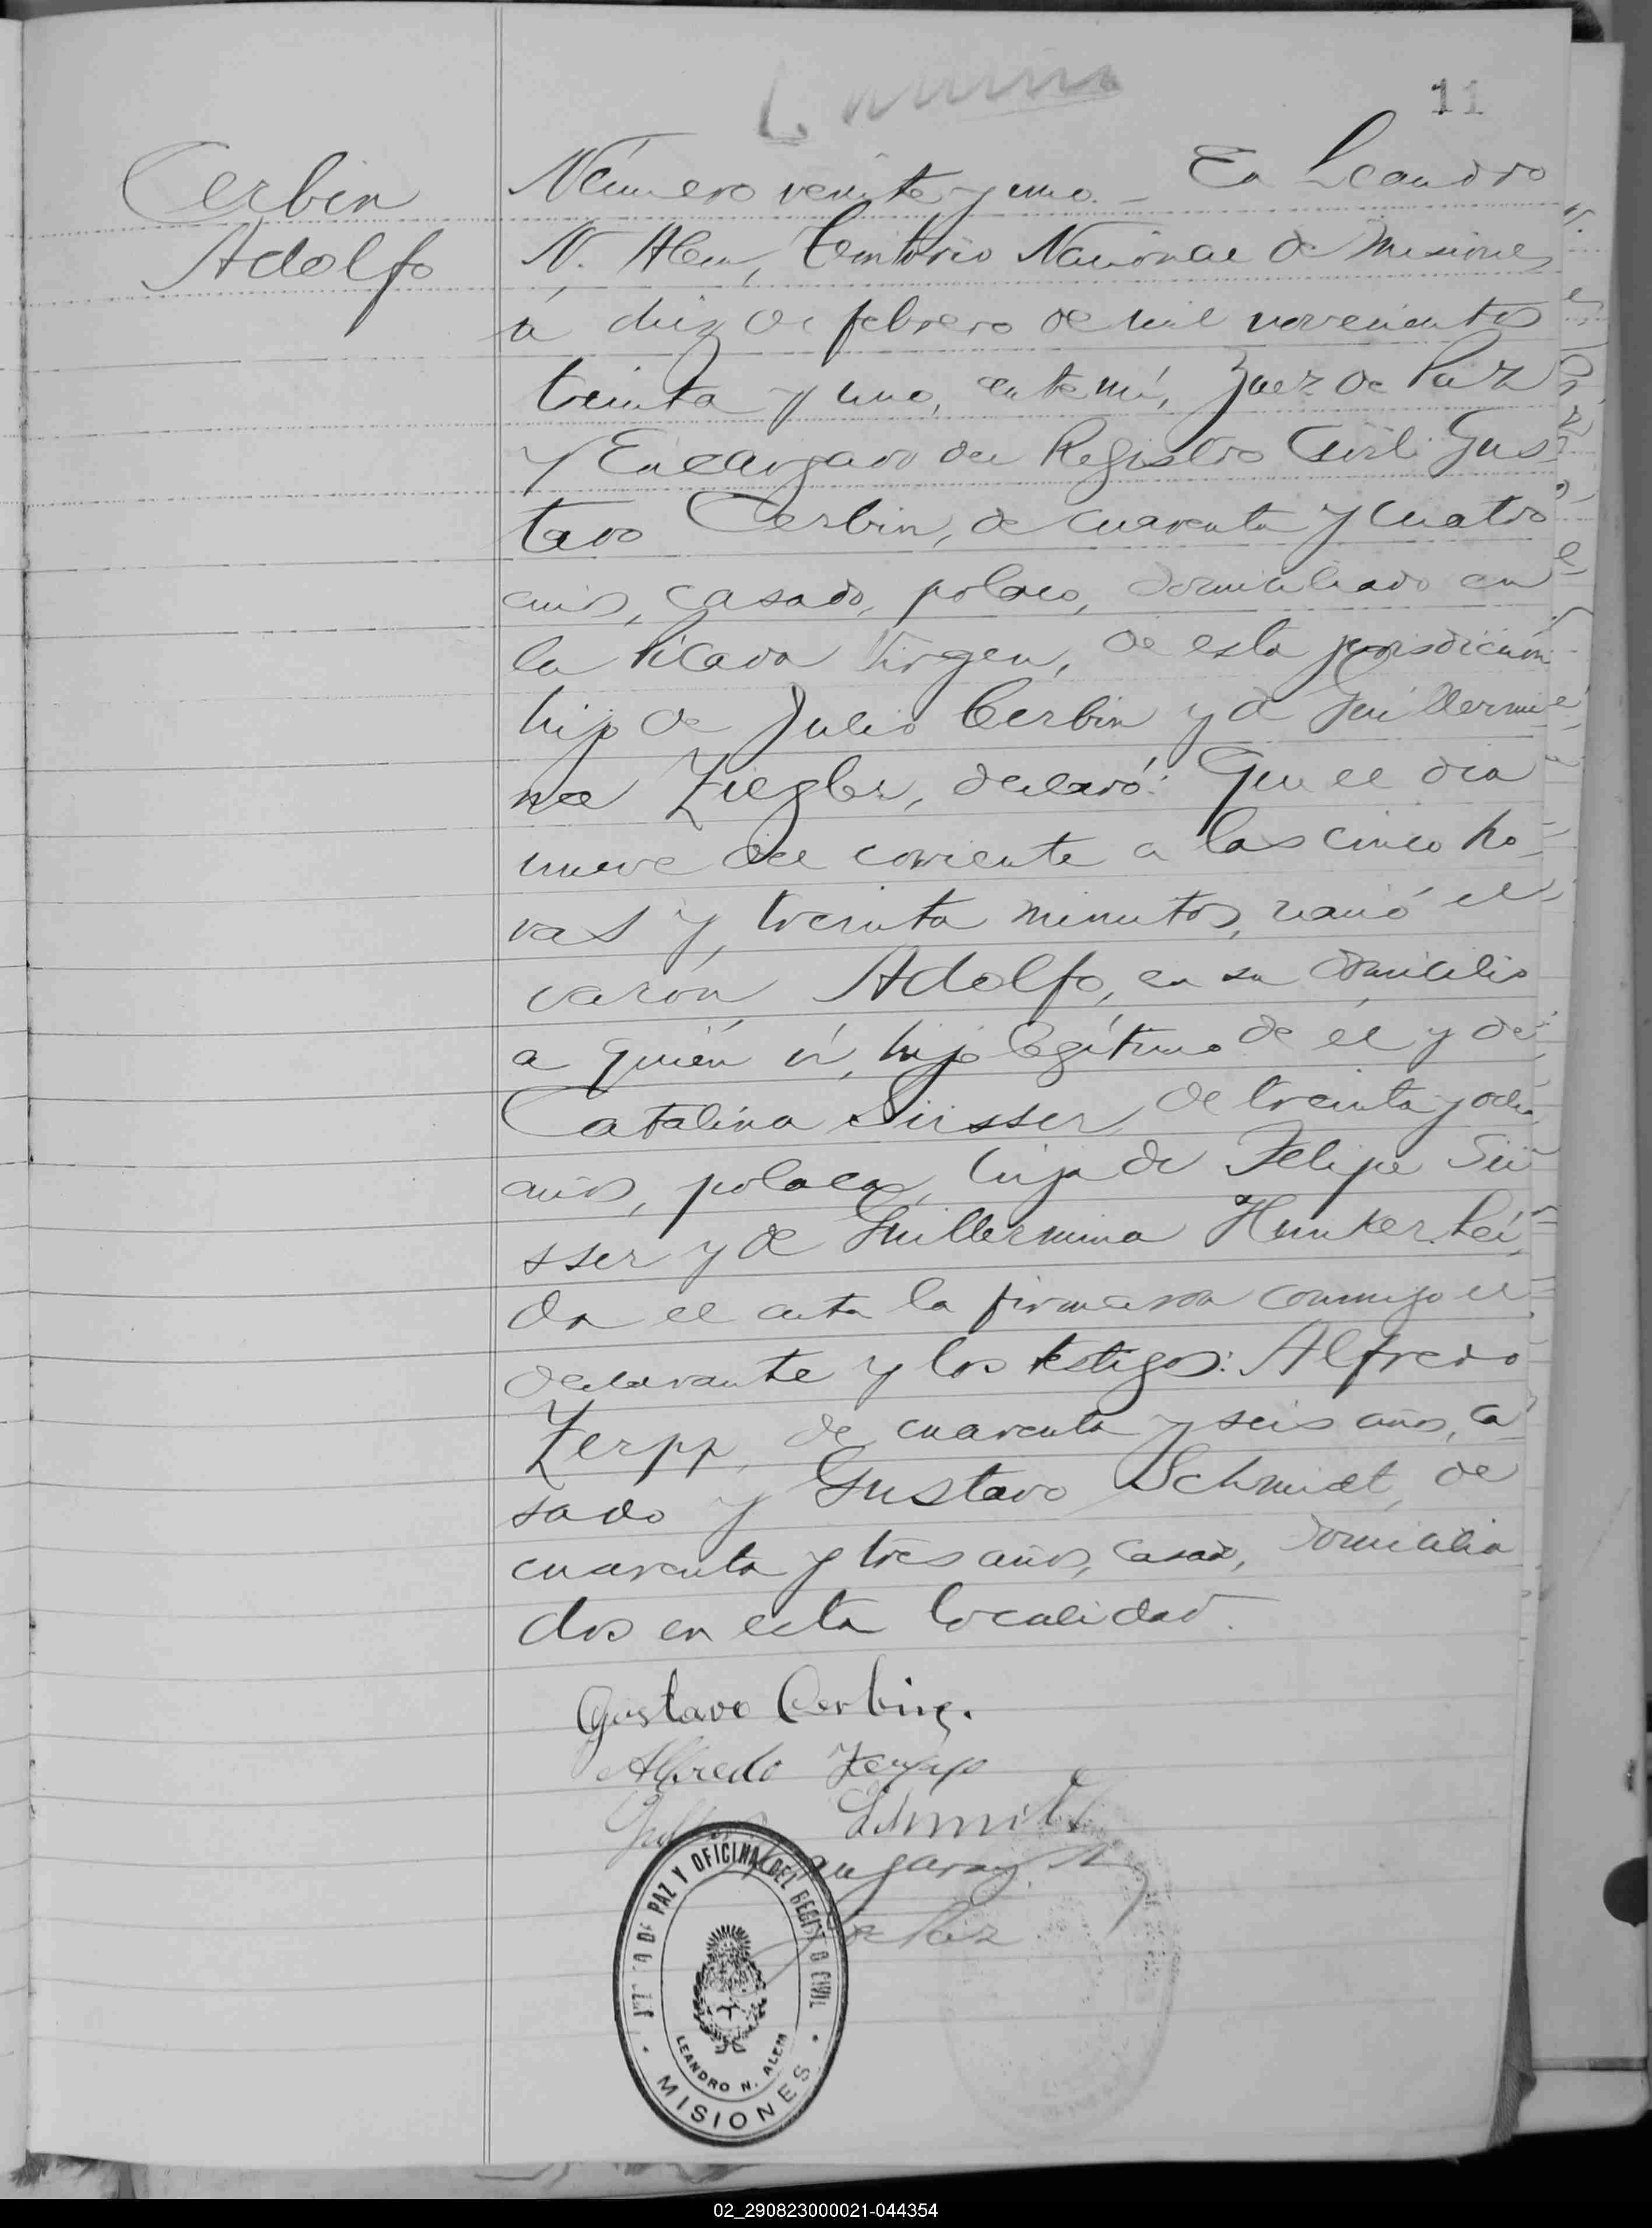 11
Cerbin
Adolfo
Número veinte y uno. - En Leandro
N. Alem, Territorio Nacional de Misiones
a diez de febrero de mil novecientos
treinta y uno, ante mí, Juez de Paz
y Encargado del Registro Civil Gus
tavo Cerbin, de cuarenta y cuatro
años, casado, polaco, domiciliado en
la Picada Virgen, de esta jurisdicción
hijo de Julio Cerbin y de Guillermi
na Ziegler, declaró: Que el dia
nueve del corriente a las cinco ho
ras y treinta minutos, nació el
varón Adolfo, en su domicilio
a quién ví, hijo legítimo de él y de
Catalina Süsser, de treinta y ocho
años, polaca, hija de Felipe Sü
sser y de Guillermina Hunker. Leí
da el acta la firmaron conmigo el
declarante y los testigos: Alfredo
Zerpp, de cuarenta y seis años, ca
sado y Gustavo Schmidt, de
cuarenta y tres años, casado, domicilia
dos en esta localidad.
Gustavo Cerbin.
Alfredo Zerpp
Schmidt
Juez de Paz
JUZGADO DE PAZ Y OFICINA DEL REGISTRO CIVIL
LEANDRO N. ALEM
· MISIONES ·
02_290823000021-044354